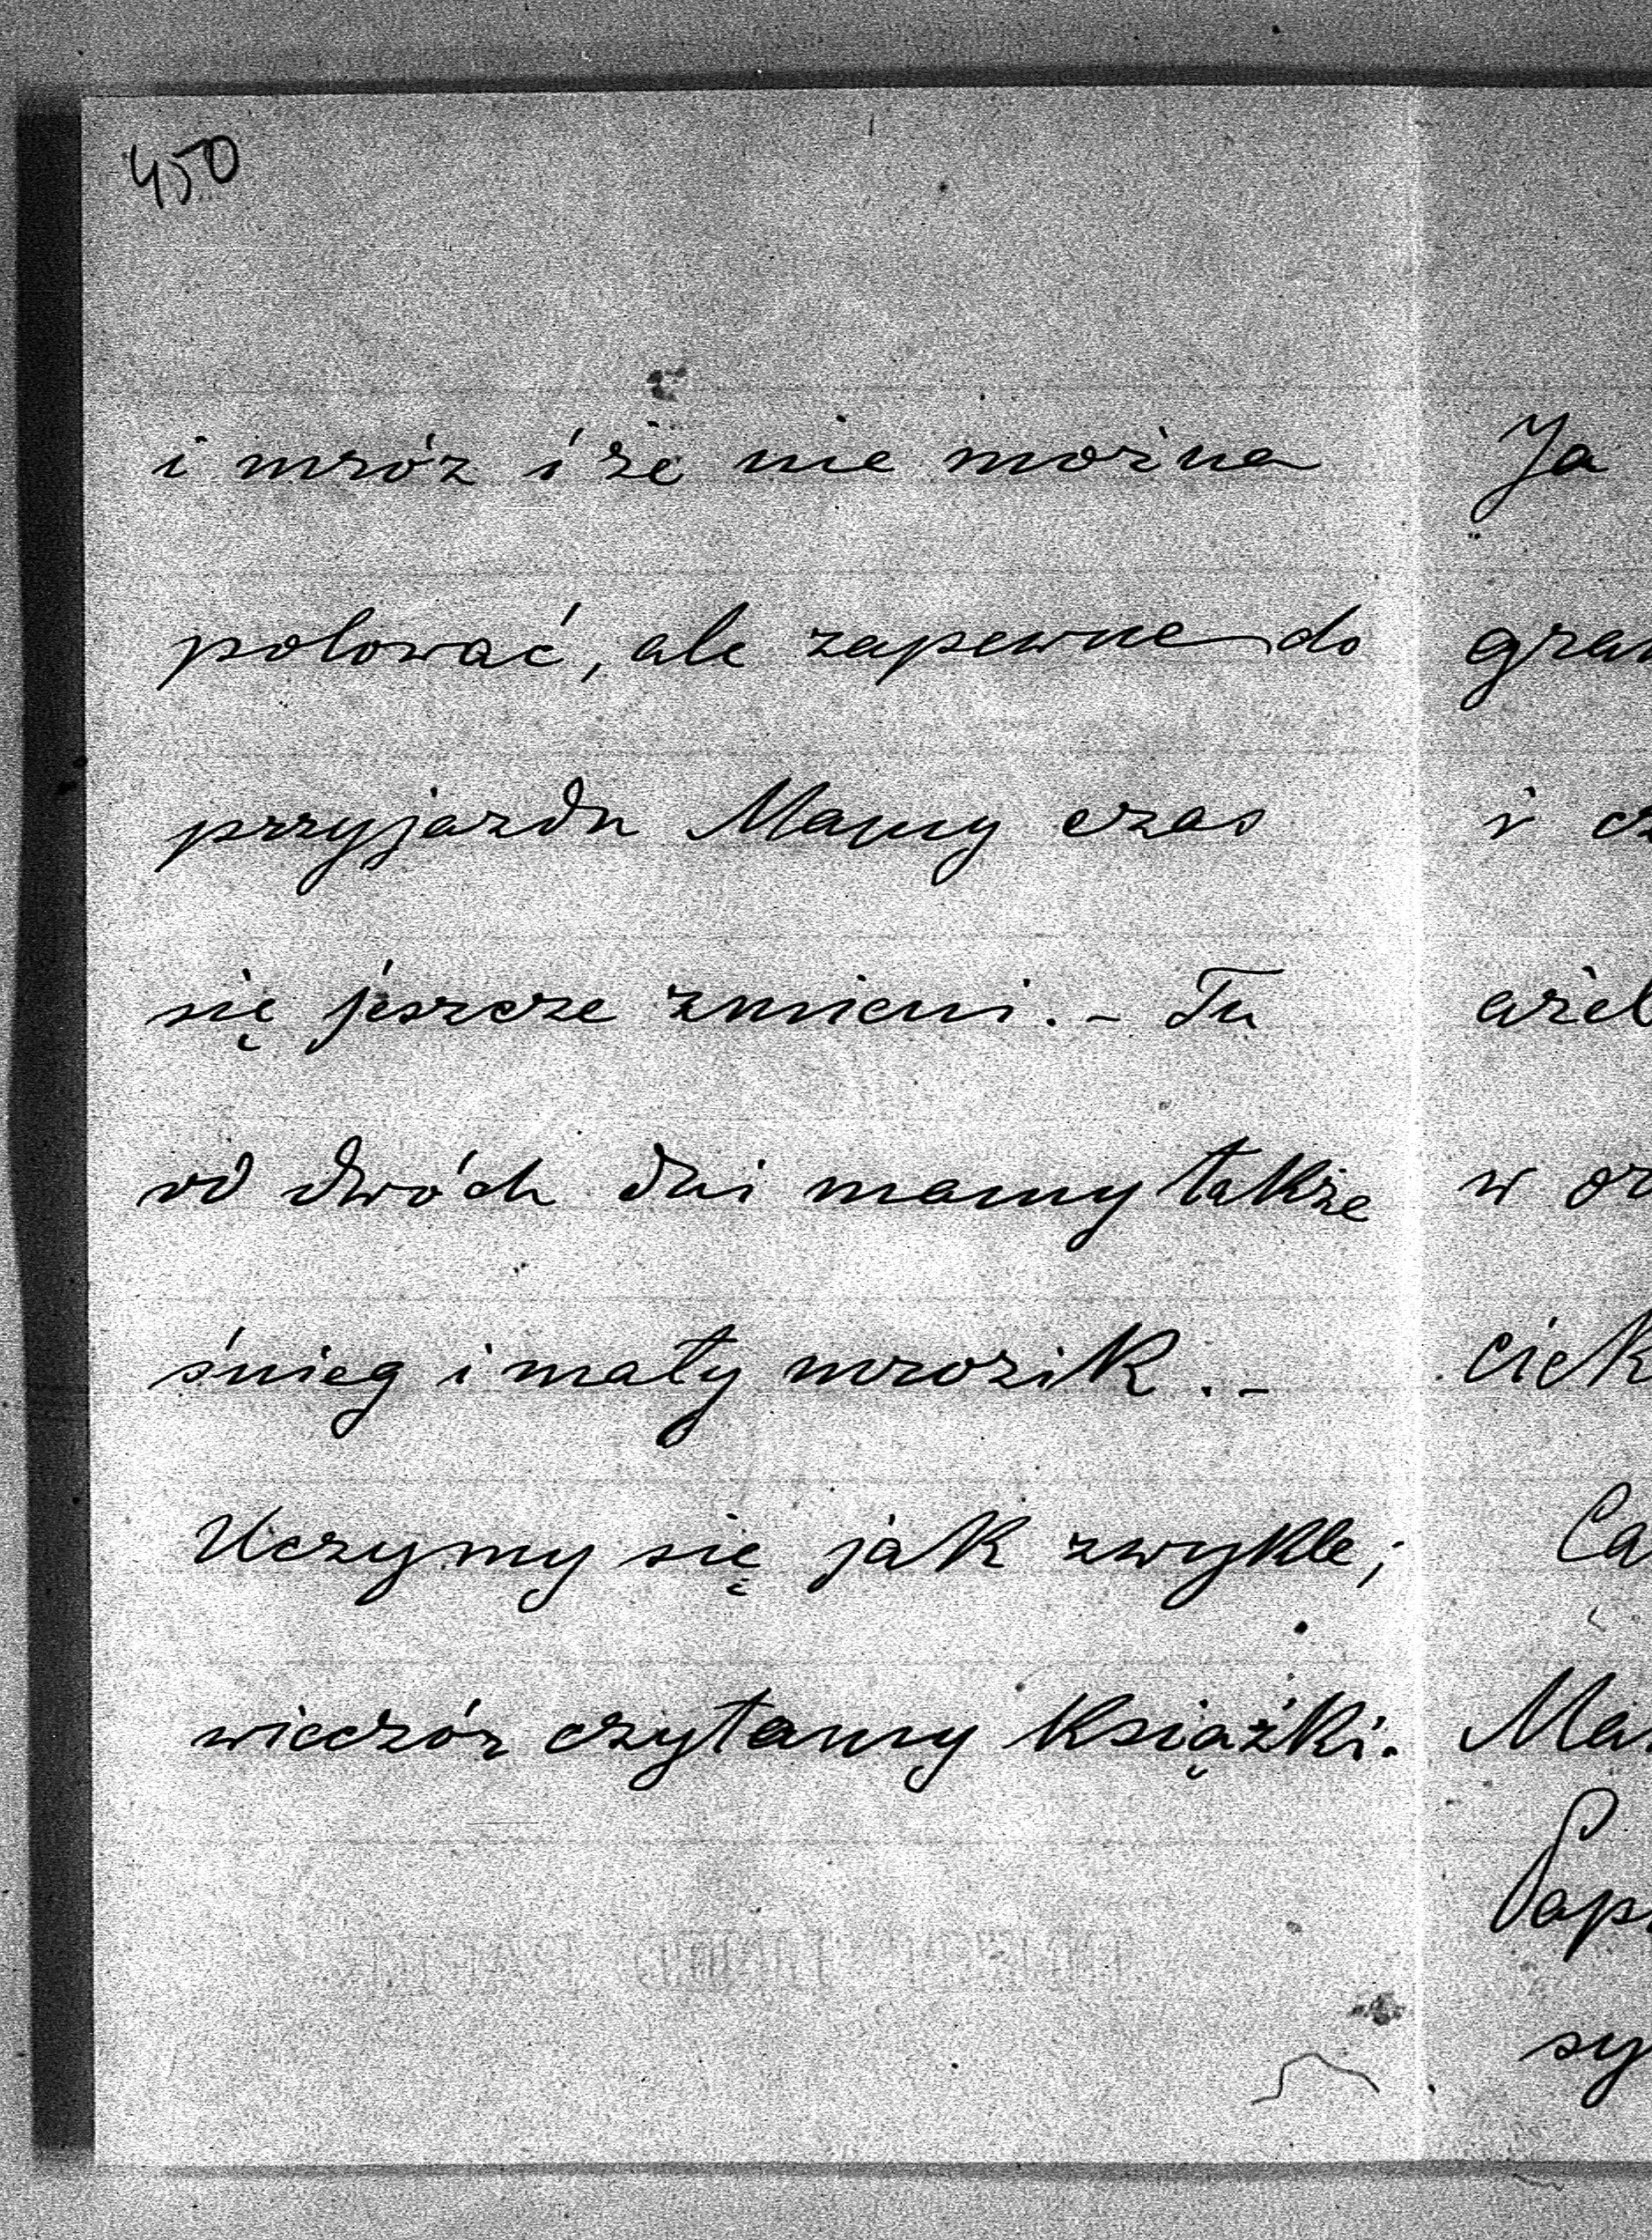 450
i mróz i że nie można
polować, ale zapewne do
przyjazdu Mamy czas
się jeszcze zmieni. - Tu
od dwóch dni mamy także
śnieg i mały mrozik. -
Uczymy się jak zwykle;
wieczór czytamy książki.
Ja